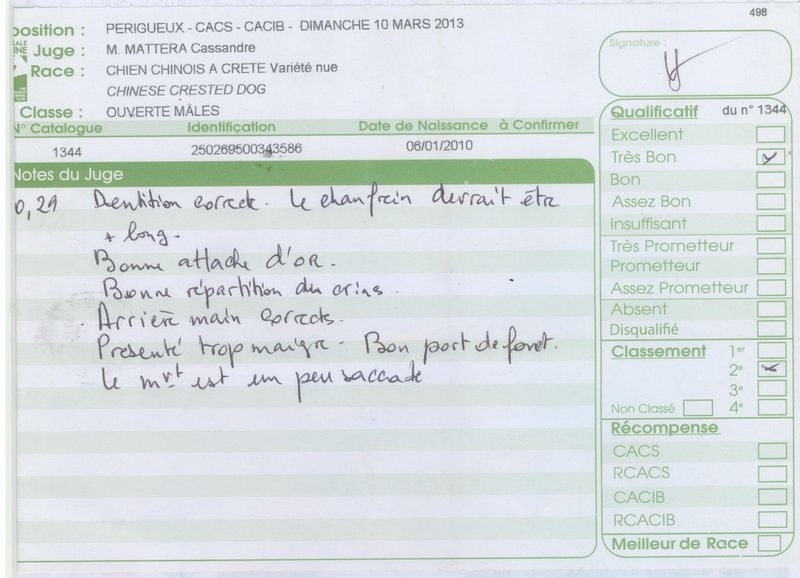 498
position : PERIGUEUX - CACS - CACIB - DIMANCHE 10 MARS 2013
Juge : M. MATTERA Cassandre
Race : CHIEN CHINOIS A CRETE Variété nue
CHINESE CRESTED DOG
Classe : OUVERTE MÂLES
N° Catalogue Identification Date de Naissance à Confirmer
1344 250269500343586 06/01/2010
Notes du Juge
0,29 Dentition correcte. Le chanfrein devrait être
+ long.
Bonne attache d'or.
Bonne répartition du crins.
Arrière main correcte.
Présenté trop maigre. Bon port de fouet.
Le mvt est un peu saccadé
Signature :
Qualificatif du n° 1344
Excellent
Très Bon
Bon
Assez Bon
Insuffisant
Très Prometteur
Prometteur
Assez Prometteur
Absent
Disqualifié
Classement 1er
2e
3e
Non Classé 4e
Récompense
CACS
RCACS
CACIB
RCACIB
Meilleur de Race